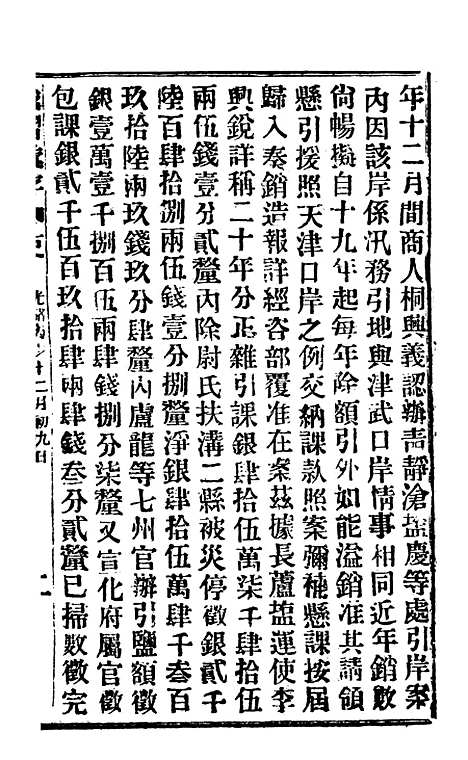 年十二月間商人桐興義認辦青靜滄塩慶等處引岸案
內因該岸係汛務引地與津武口岸情事相同近年銷數
尙暢擬自十九年起每年除額引外如能溢銷准其請領
懸引援照天津口岸之例交納課款照案彌補懸課按屆
歸入奏銷造報詳經咨部覆准在案茲據長蘆塩運使李
興銳詳稱二十年分正雜引課銀肆拾伍萬柒千肆拾伍
兩伍錢壹分貳釐內除尉氏扶溝二縣被災停徵銀貳千
陸百肆拾捌兩伍錢壹分捌釐淨銀肆拾伍萬肆千叁百
玖拾陸兩玖錢玖分肆釐內盧龍等七州官辦引鹽額徵
銀壹萬壹千捌百伍兩肆錢捌分柒釐又宣化府屬官徵
包課銀貳千伍百玖拾肆兩肆錢叁分貳釐已掃數徵完
十二月初九日
二